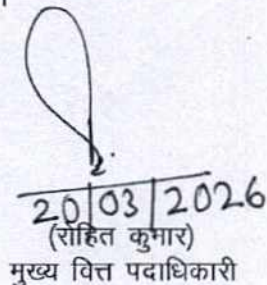 20|03|2026
(रोहित कुमार)
मुख्य वित्त पदाधिकारी